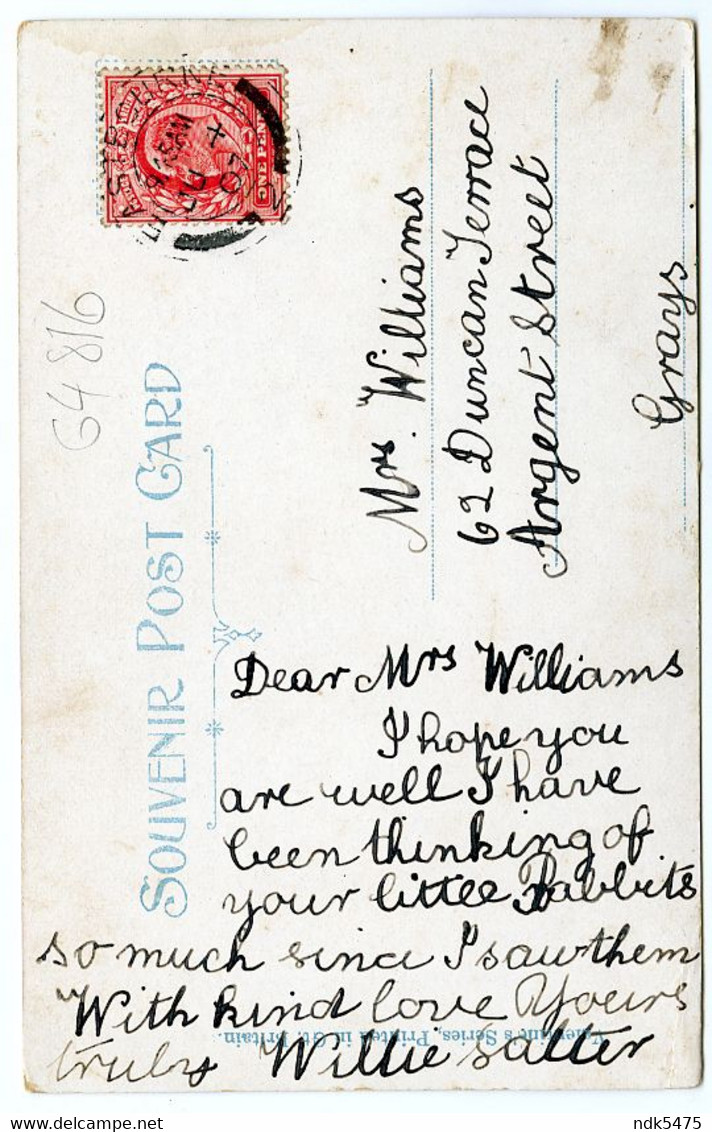 64816
SOUVENIR POST CARD
EASTBOURNE
ONE PENNY
Mrs. Williams
62 Duncan Terrace
Argent Street
Grays
Dear Mrs Williams
I hope you
are well I have
been thinking of
your littee Rabbits
so much since I saw them
With kind love Yours
truly Willie Salter
Valentine's Series, Printed in Gt. Britain.
ndk5475